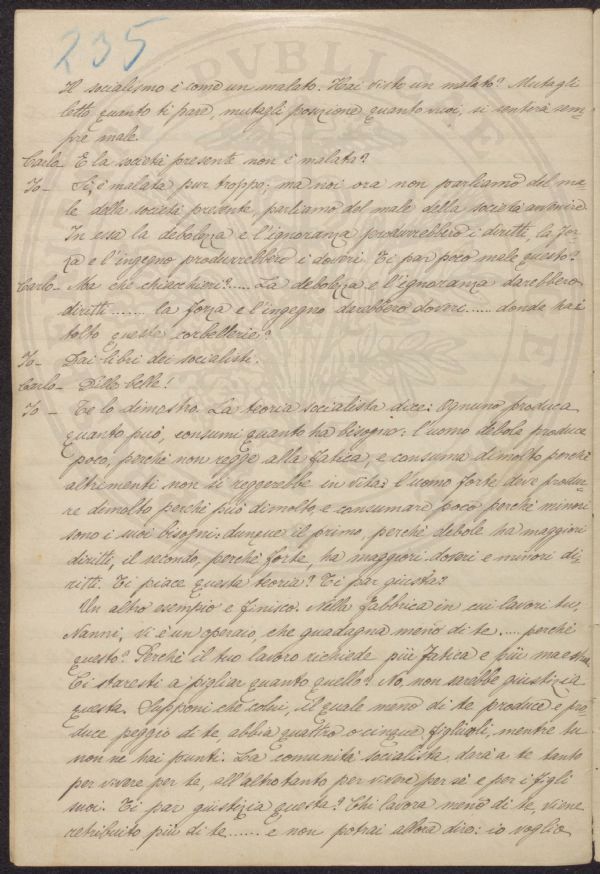 235
Il socialismo è come un malato. Hai visto un malato? Mutagli
letto quanto ti pare, mutagli posizione quanto vuoi, si sentirà sem=
pre male.
Carlo – E la società presente non è malata?
Io – Sì, è malata pur troppo; ma noi ora non parliamo del ma=
le della società presente, parliamo del male della società avvenire
In essa la debolezza e l'ignoranza produrrebbero i diritti, la for=
za e l'ingegno produrrebbero i doveri. Ti par poco male questo?
Carlo – Ma che chiacchieri?..... La debolezza e l'ignoranza darebbero
diritti........ la forza e l'ingegno darebbero doveri...... donde hai
tolto queste corbellerie?
Io – Dai libri dei socialisti.
Carlo – Dille belle!
Io – Te lo dimostro. La teoria socialista dice: Ognuno produca
quanto può, consumi quanto ha bisogno: l'uomo debole produce
poco, perchè non regge alla fatica, e consuma dimolto perchè
altrimenti non si reggerebbe in vita: l'uomo forte deve produr=
re dimolto perchè può dimolto, e consumare poco perchè minori
sono i suoi bisogni: dunque il primo, perchè debole ha maggiori
diritti, il secondo, perchè forte, ha maggiori doveri e minori di=
ritti. Ti piace questa teoria? Ti par giusta?
Un altro esempio e finisco. Nella fabbrica in cui lavori tu,
Nanni, vi è un operaio, che guadagna meno di te..... perchè
questo? Perchè il tuo lavoro richiede più fatica e più maestria.
Ci staresti a pigliar quanto quello? No, non sarebbe giustizia
questa. Supponi che colui, il quale meno di te produce e pro=
duce peggio di te, abbia quattro o cinque figliuoli, mentre tu
non ne hai punti. La comunità socialista, darà a te tanto
per vivere per te, all'altro tanto per vivere per sè e per i figli
suoi. Ti par giustizia questa? Chi lavora meno di te, viene
retribuito più di te....... e non potrai allora dire: io voglio
PVBLIC